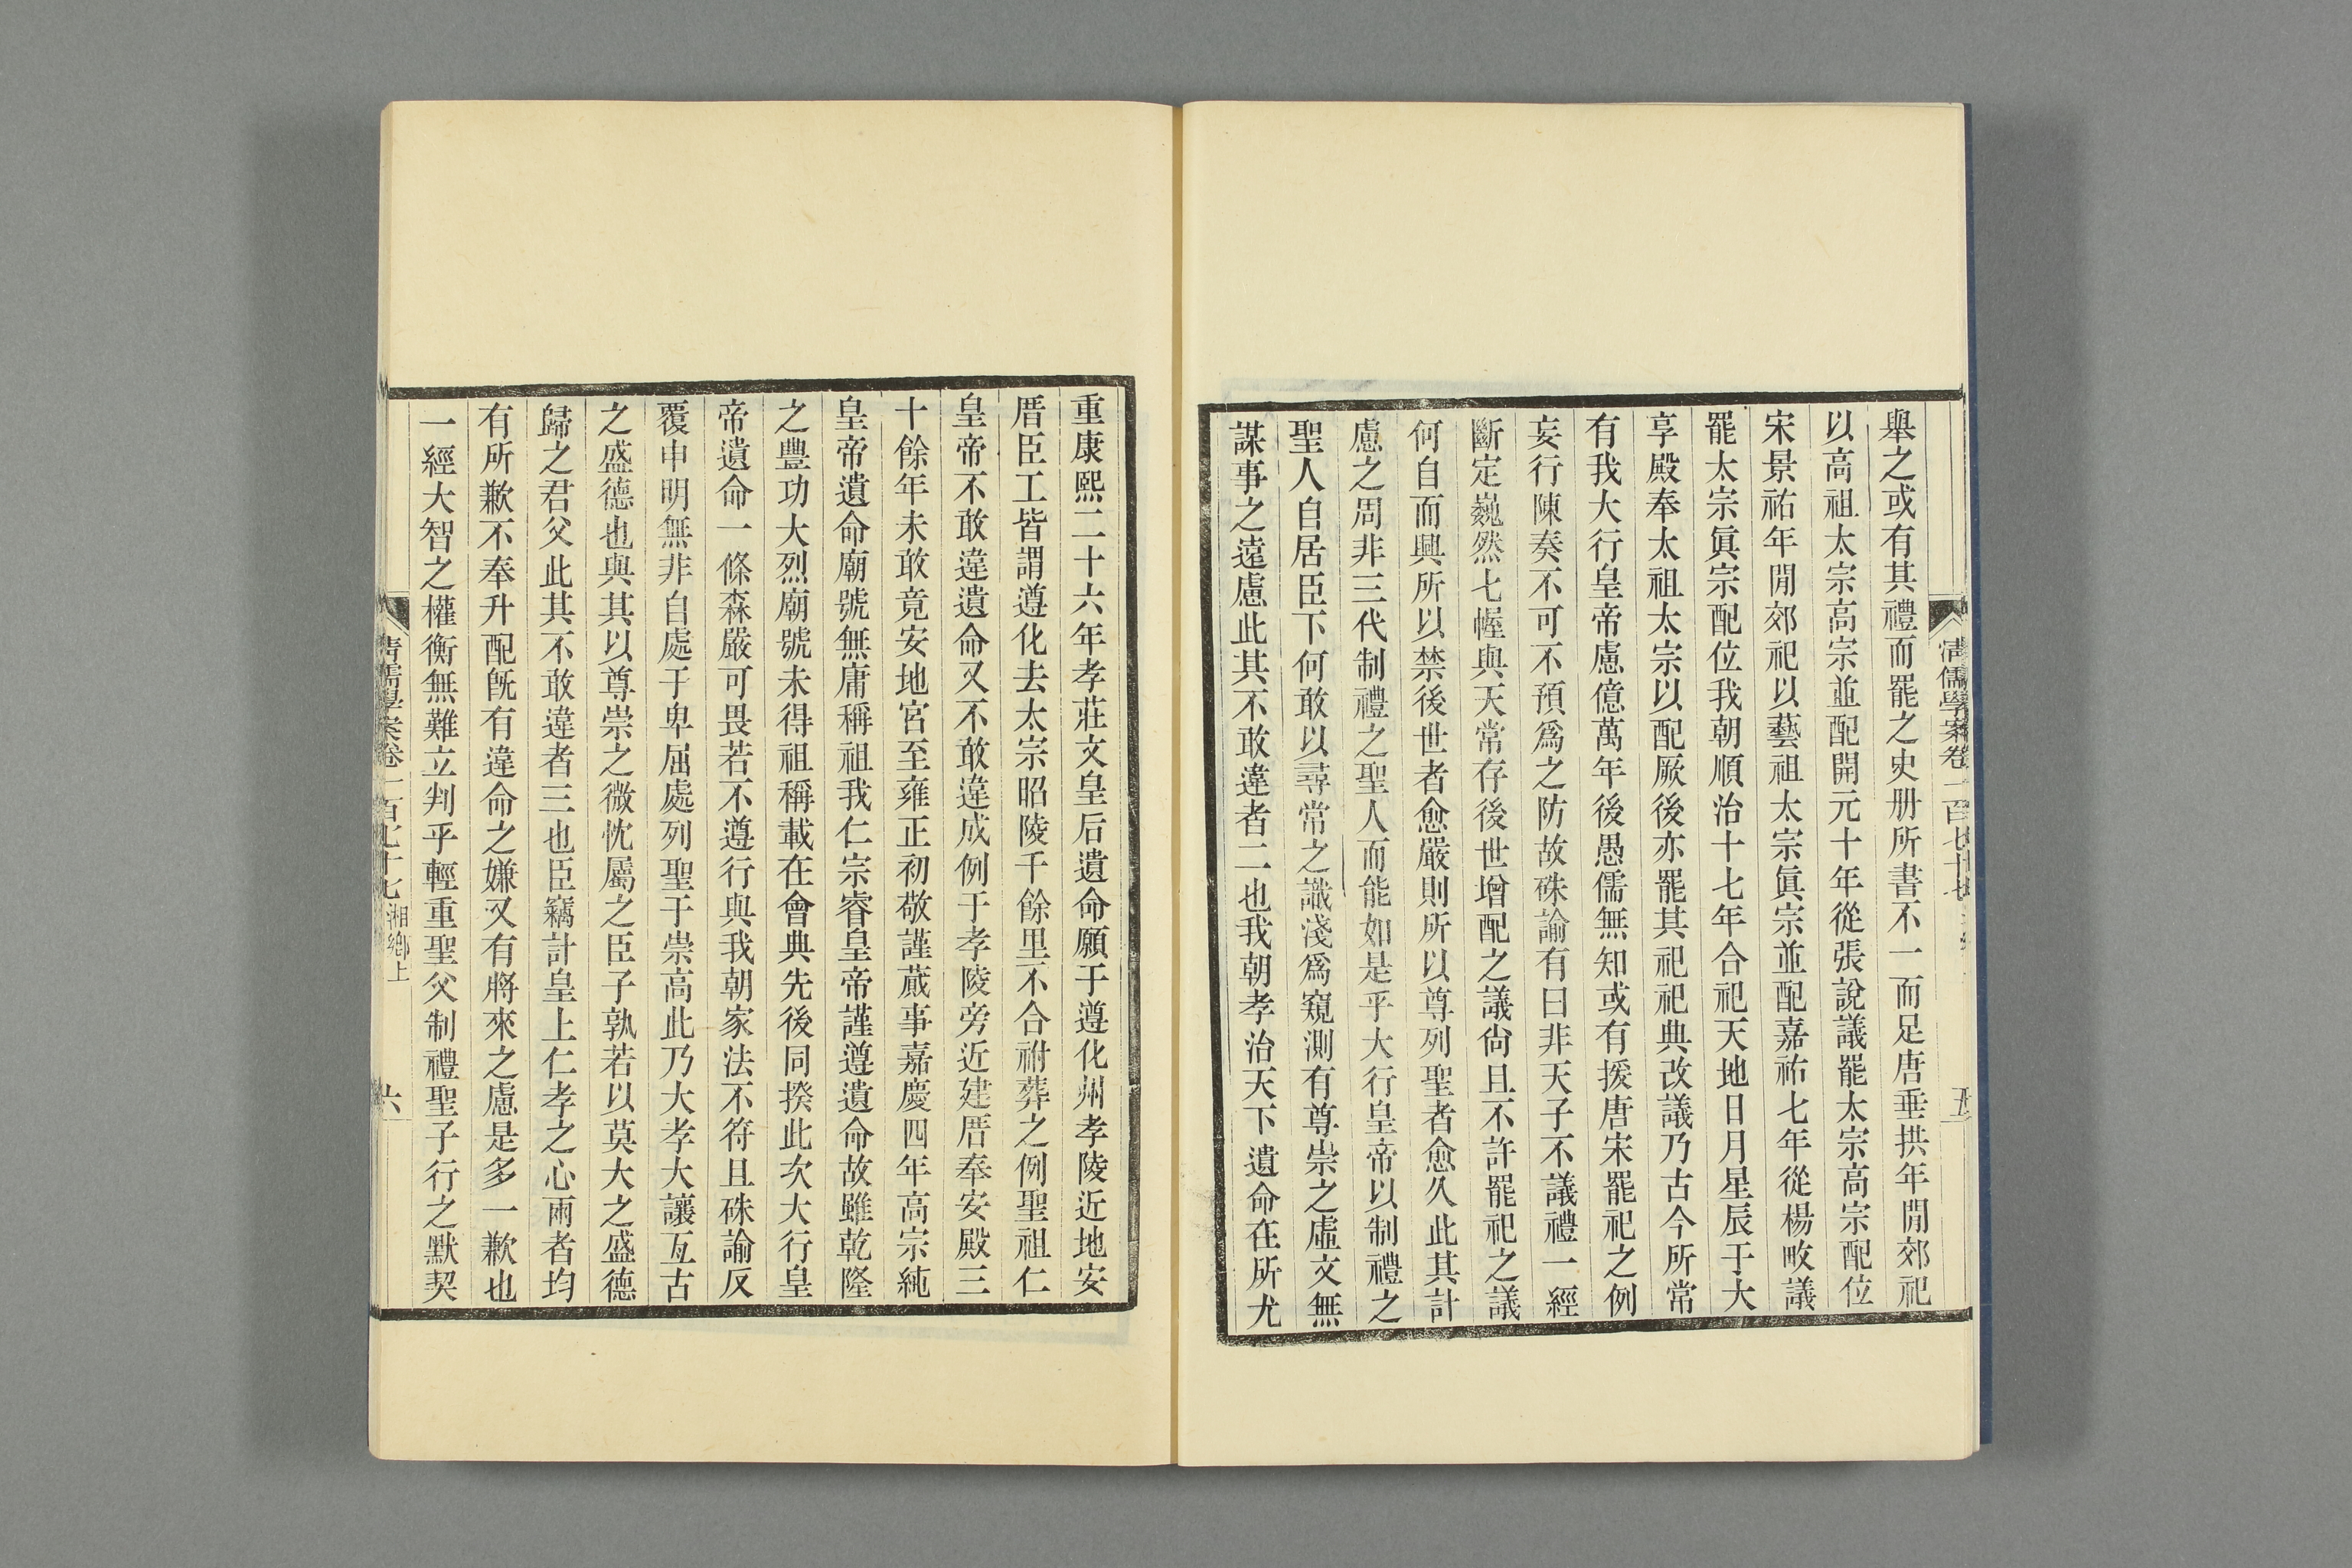 清儒學案卷一百七十七
五
舉之或有其禮而罷之史册所書不一而足唐垂拱年閒郊祀
以高祖太宗高宗並配開元十年從張說議罷太宗高宗配位
宋景祐年閒郊祀以藝祖太宗眞宗並配嘉祐七年從楊畋議
罷太宗眞宗配位我朝順治十七年合祀天地日月星辰于大
享殿奉太祖太宗以配厥後亦罷其祀祀典改議乃古今所常
有我大行皇帝慮億萬年後愚儒無知或有援唐宋罷祀之例
妄行陳奏不可不預爲之防故硃諭有曰非天子不議禮一經
斷定巍然七幄與天常存後世增配之議尙且不許罷祀之議
何自而興所以禁後世者愈嚴則所以尊列聖者愈久此其計
慮之周非三代制禮之聖人而能如是乎大行皇帝以制禮之
聖人自居臣下何敢以尋常之識淺爲窺測有尊崇之虛文無
謀事之遠慮此其不敢違者二也我朝孝治天下遺命在所尤
重康熙二十六年孝莊文皇后遺命願于遵化州孝陵近地安
厝臣工皆謂遵化去太宗昭陵千餘里不合祔葬之例聖祖仁
皇帝不敢違遺命又不敢違成例于孝陵旁近建厝奉安殿三
十餘年未敢竟安地宮至雍正初敬謹蕆事嘉慶四年高宗純
皇帝遺命廟號無庸稱祖我仁宗睿皇帝謹遵遺命故雖乾隆
之豐功大烈廟號未得祖稱載在會典先後同揆此次大行皇
帝遺命一條森嚴可畏若不遵行與我朝家法不符且硃諭反
覆申明無非自處于卑屈處列聖于崇高此乃大孝大讓亙古
之盛德也與其以尊崇之微忱屬之臣子孰若以莫大之盛德
歸之君父此其不敢違者三也臣竊計皇上仁孝之心兩者均
有所歉不奉升配旣有違命之嫌又有將來之慮是多一歉也
一經大智之權衡無難立判乎輕重聖父制禮聖子行之默契
清儒學案卷一百七十七 湘鄉上
六